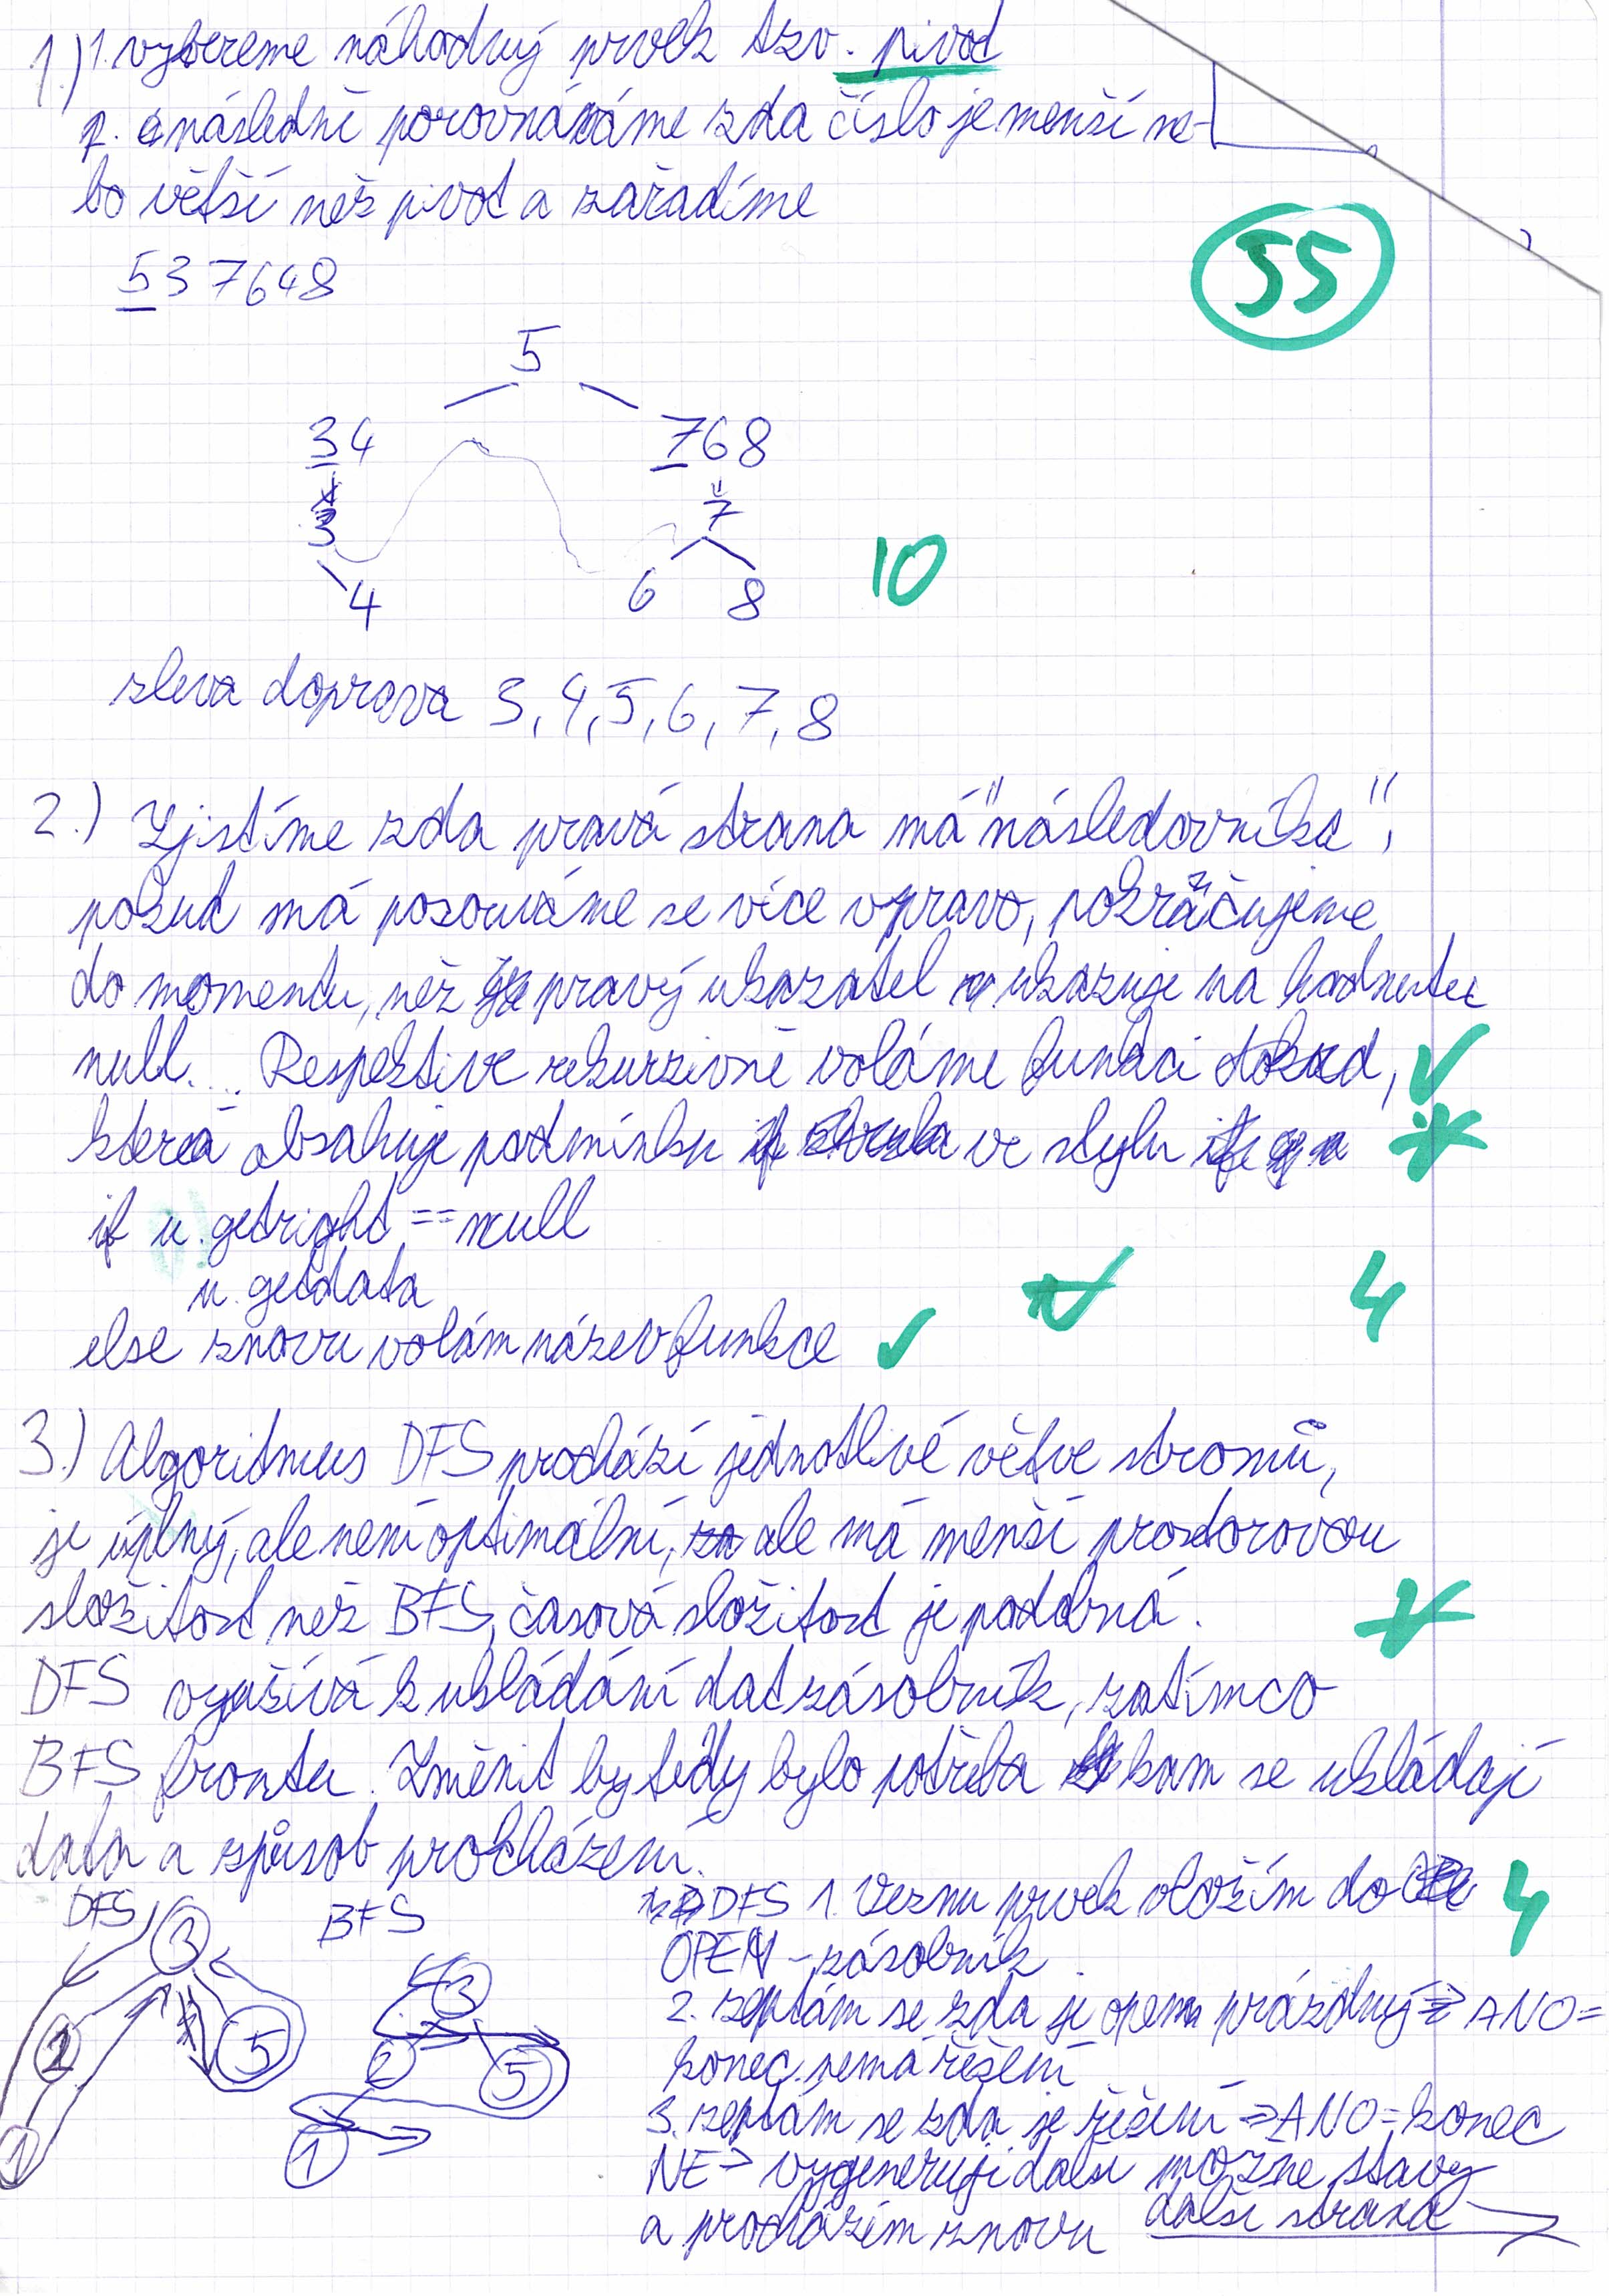 1.) 1. vybereme náhodný prvek tzv. pivod
2. následně porovnáváme zda číslo je menší ne-
bo větší než pivot a zařadíme
5 3 7 6 4 8
55
5
3 4 7 6 8
7
3
4 6 8
10
zleva doprava 3, 4, 5, 6, 7, 8
2.) Zjistíme zda pravá strana má "následovníka",
pokud má posouváme se více vpravo, pokračujeme
do momentu, než pravý ukazatel ukazuje na hodnotu
null... Respektive rekurzivně voláme funkci,
která obsahuje podmínku ve stylu
if u.getright == null
u.getdata
else znovu volám název funkce
4
3.) Algoritmus DFS prochází jednotlivé větve stromů,
je úplný, ale není optimální, ale má menší prostorovou
složitost než BFS, časová složitost je podobná.
DFS využívá k ukládání dat zásobník, zatímco
BFS frontu. Změnit by tedy bylo potřeba kam se ukládají
data a způsob procházení.
DFS
3
2
5
1
BFS
3
2
5
1
DFS 1. Vezmu prvek vložím do
OPEN - zásobník
2. zeptám se zda je open prázdný => ANO =
konec nemá řešení
3. zeptám se zda je řešení => ANO = konec
NE -> vygeneruji další možné stavy
a procházím znovu další strana
4